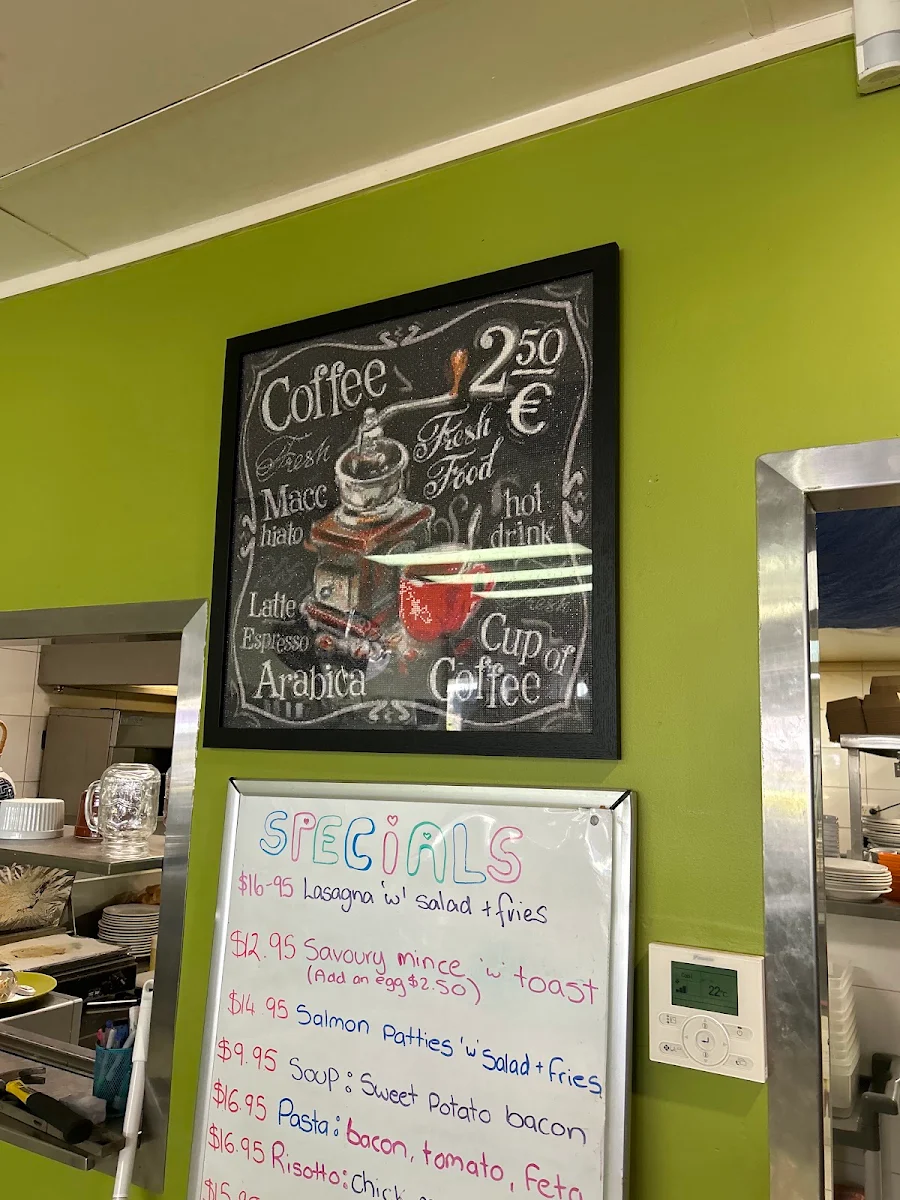 Coffee
2 50
€
Fresh
Fresh
Food
Macc
hiato
hot
drink
fresh
Latte
Espresso
Arabica
Cup of
Coffee
SPECIALS
$16-95 Lasagna 'w' salad + fries
$12.95 Savoury mince 'w' toast
(Add an egg $2.50)
$14 95 Salmon Patties 'w' salad + fries
$9.95 Soup: Sweet Potato bacon
$16.95 Pasta: bacon, tomato, feta
$16.95 Risotto: Chick
22°c